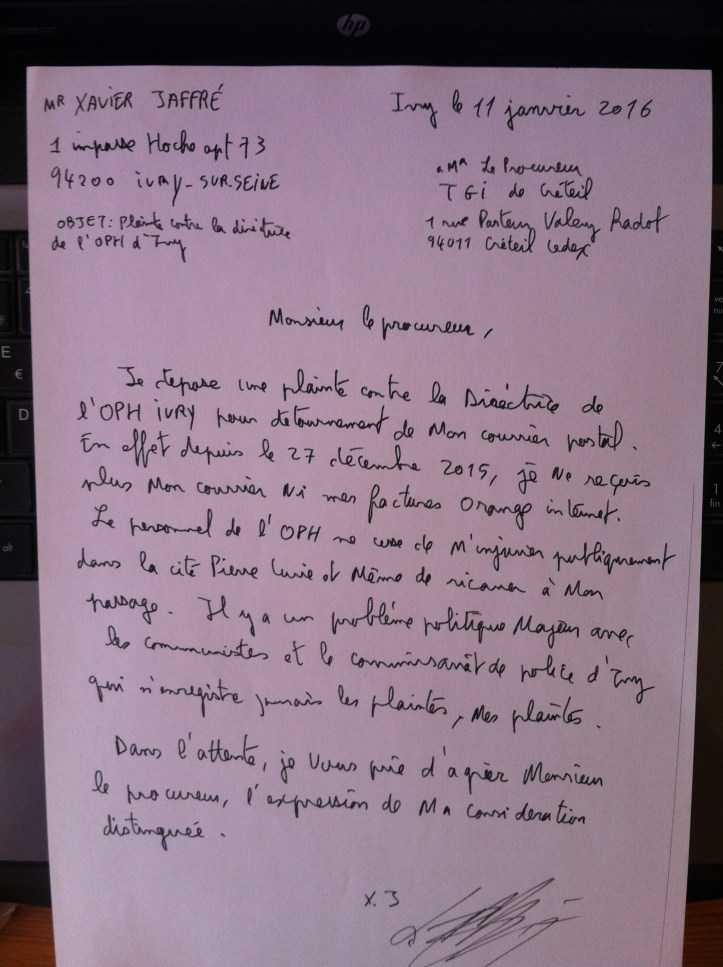 hp
Mr XAVIER JAFFRÉ
Ivry le 11 janvier 2016
1 impasse Hoche apt 73
94200 IVRY-SUR-SEINE
Mr Le Procureur
TGI de Créteil
1 rue Pasteur Valery Radot
94011 Créteil cedex
OBJET: Plainte contre la diréctrice
de l'OPH d'Ivry
Monsieur le procureur,
Je depose une plainte contre la Diréctrice de
l'OPH IVRY pour detournement de Mon courrier postal.
En effet depuis le 27 décembre 2015, je Ne reçois
plus Mon courrier Ni mes factures Orange internet.
Le personnel de l'OPH ne cesse de M'injurier publiquement
dans la cité Pierre Curie et Même de ricaner à Mon
passage. Il y a un problème politique Majeur avec
les communistes et le commissariat de police d'Ivry
qui n'enregistre jamais les plaintes, Mes plaintes.
Dans l'attente, je Vous prie d'agréer Monsieur
le procureur, l'expression de Ma consideration
distinguée.
X.J
E
€
D
alt
7
4
1
fin